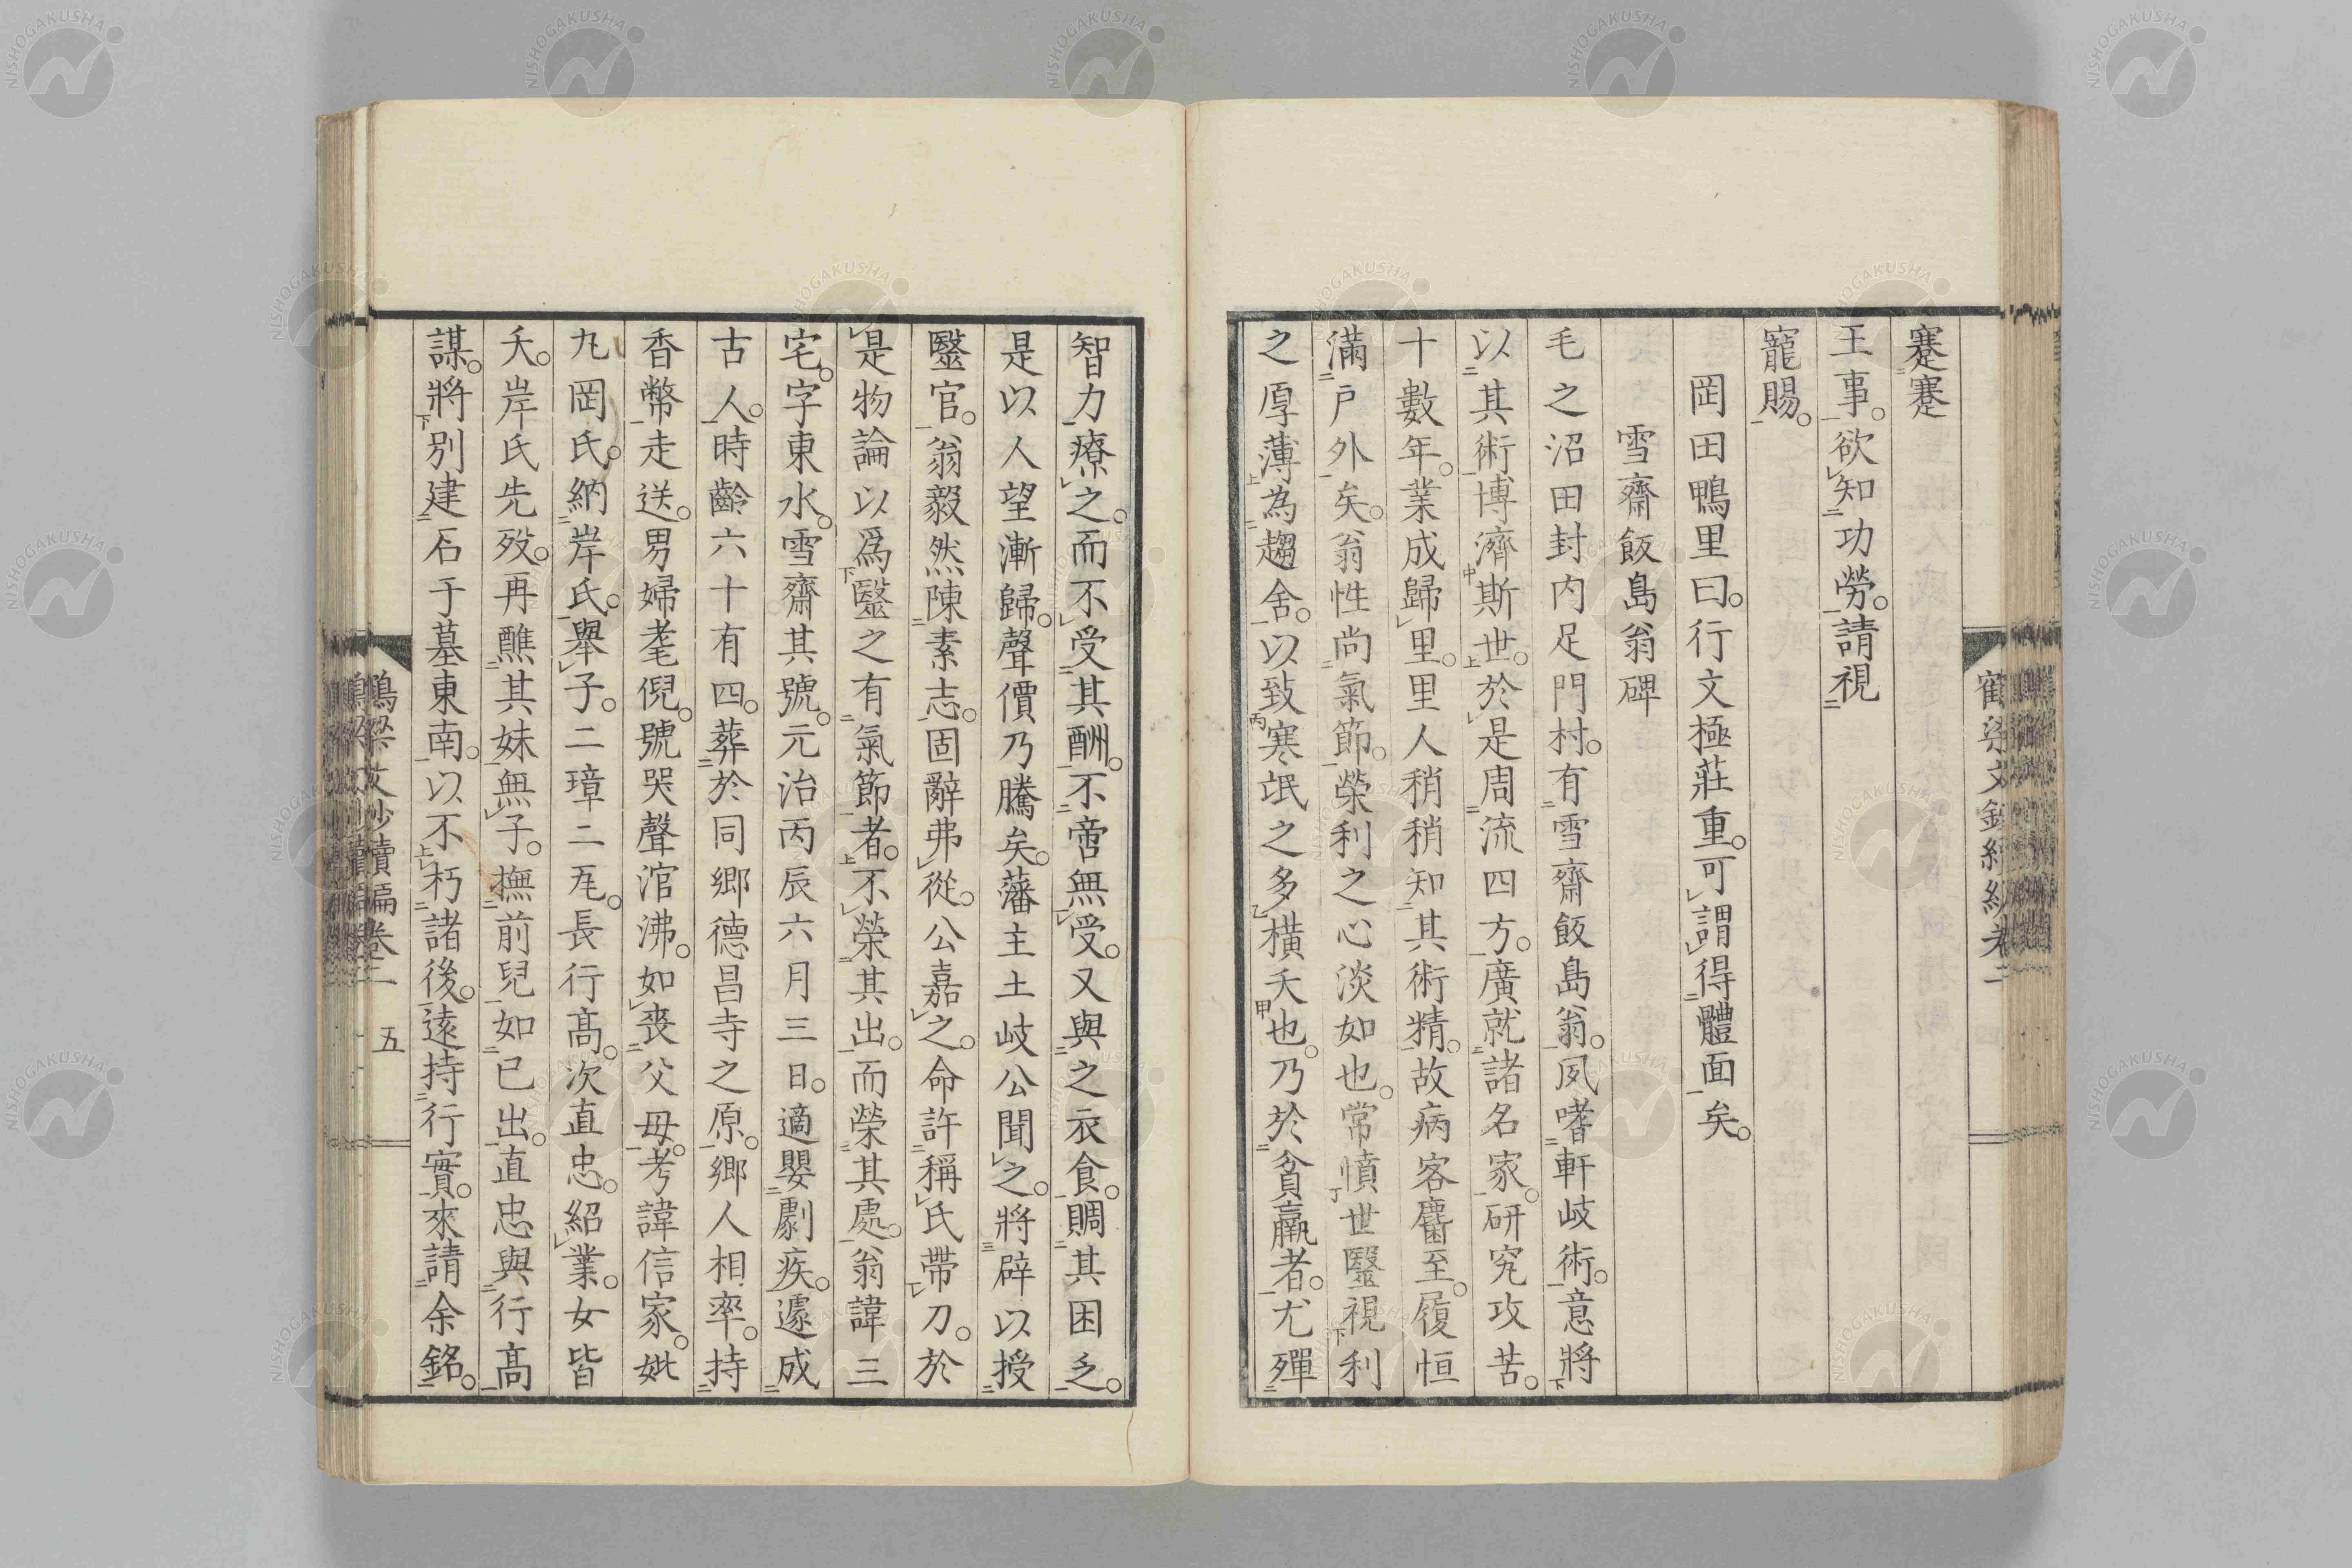 蹇蹇
王事。欲知功勞。請視
寵賜。
岡田鴨里曰。行文極莊重。可謂得體面矣。
雪齋飯島翁碑
毛之沼田封内足門村。有雪齋飯島翁。夙嗜軒岐術。意將
以其術博濟斯世。於是周流四方。廣就諸名家。研究攻苦。
十數年。業成歸里。里人稍稍知其術精。故病客麕至。履恒
滿戸外矣。翁性尚氣節。榮利之心淡如也。常憤世毉視利
之厚薄為趨舍。以致寒氓之多橫夭也。乃於貧羸者。尤殫
智力療之。而不受其酬。不啻無受。又與之衣食。賙其困乏。
是以人望漸歸。聲價乃騰矣。藩主土岐公聞之。將辟以授
毉官。翁毅然陳素志。固辭弗從。公嘉之。命許稱氏帶刀。於
是物論以爲毉之有氣節者。不榮其出。而榮其處。翁諱三
宅。字東水。雪齋其號。元治丙辰六月三日。適嬰劇疾。遽成
古人。時齡六十有四。葬於同鄉德昌寺之原。鄉人相率。持
香幣走送。男婦耄倪。號哭聲涫沸。如喪父母。考諱信家。妣
九岡氏。納岸氏。舉子。二璋二瓦。長行高。次直忠。紹業。女皆
夭。岸氏先歿。再醮其妹無子。撫前兒如已出。直忠與行高
謀。將別建石于墓東南。以不朽諸後。遠持行實。來請余銘。
鶴梁文鈔續編卷二
五